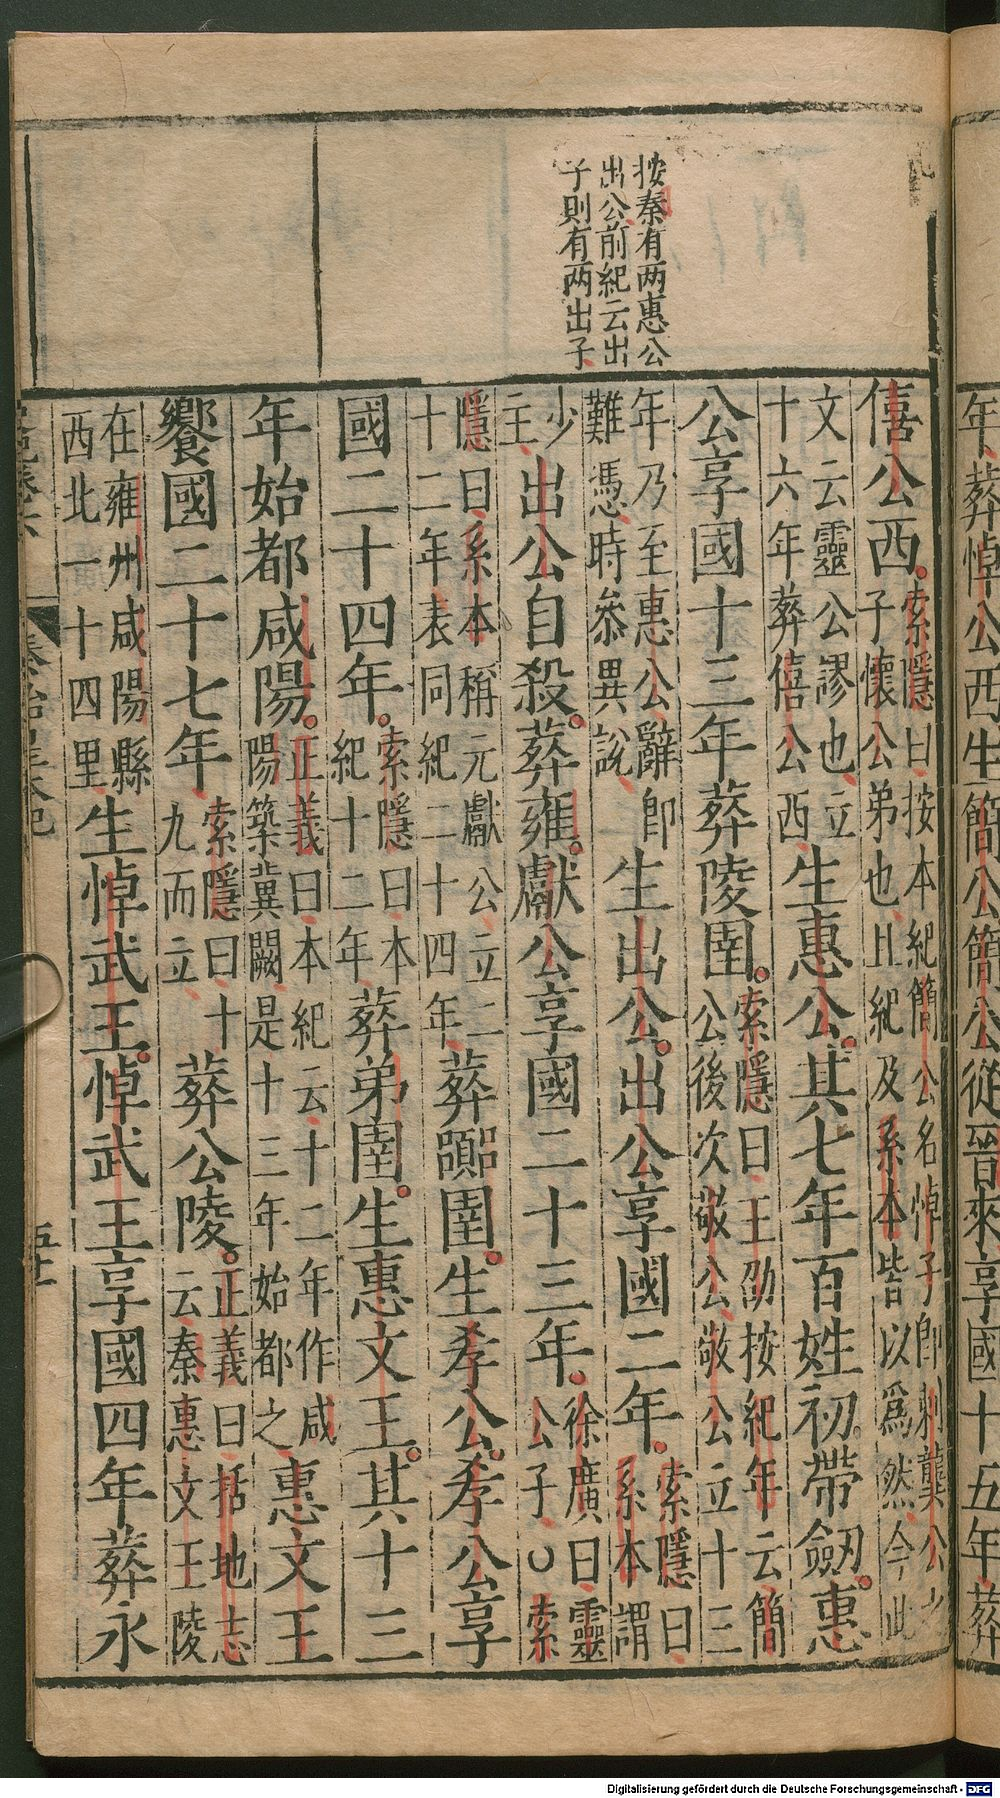 年葬悼公西生簡公簡公從晉來享國十五年葬
按秦有两惠公
出公前紀云出
子則有两出子
僖公西。索隱曰按本紀簡公名悼子即刺龔公之子懷公弟也且紀及系本皆以爲然今此
文云靈公謬也立十六年葬僖公西生惠公。其七年百姓初帶劒。惠
公享國十三年葬陵圉。索隱曰王劭按紀年云簡公後次敬公敬公立十三
年乃至惠公辭即難憑時叅異說生出公。出公享國二年。索隱曰系本謂
少主出公自殺。葬雍。獻公享國二十三年。徐廣曰靈公子○索
隱曰系本稱元獻公立二十二年表同紀二十四年葬嚻圉。生孝公。孝公享
國二十四年。索隱曰本紀十二年葬弟圉。生惠文王。其十三
年始都咸陽。正義曰本紀云十二年作咸陽築冀闕是十三年始都之惠文王
饗國二十七年索隱曰十九而立葬公陵。正義曰括地志云秦惠文王陵
在雍州咸陽縣西北一十四里生悼武王。悼武王享國四年葬永
秦始皇本紀
Digitalisierung gefördert durch die Deutsche Forschungsgemeinschaft - DFG